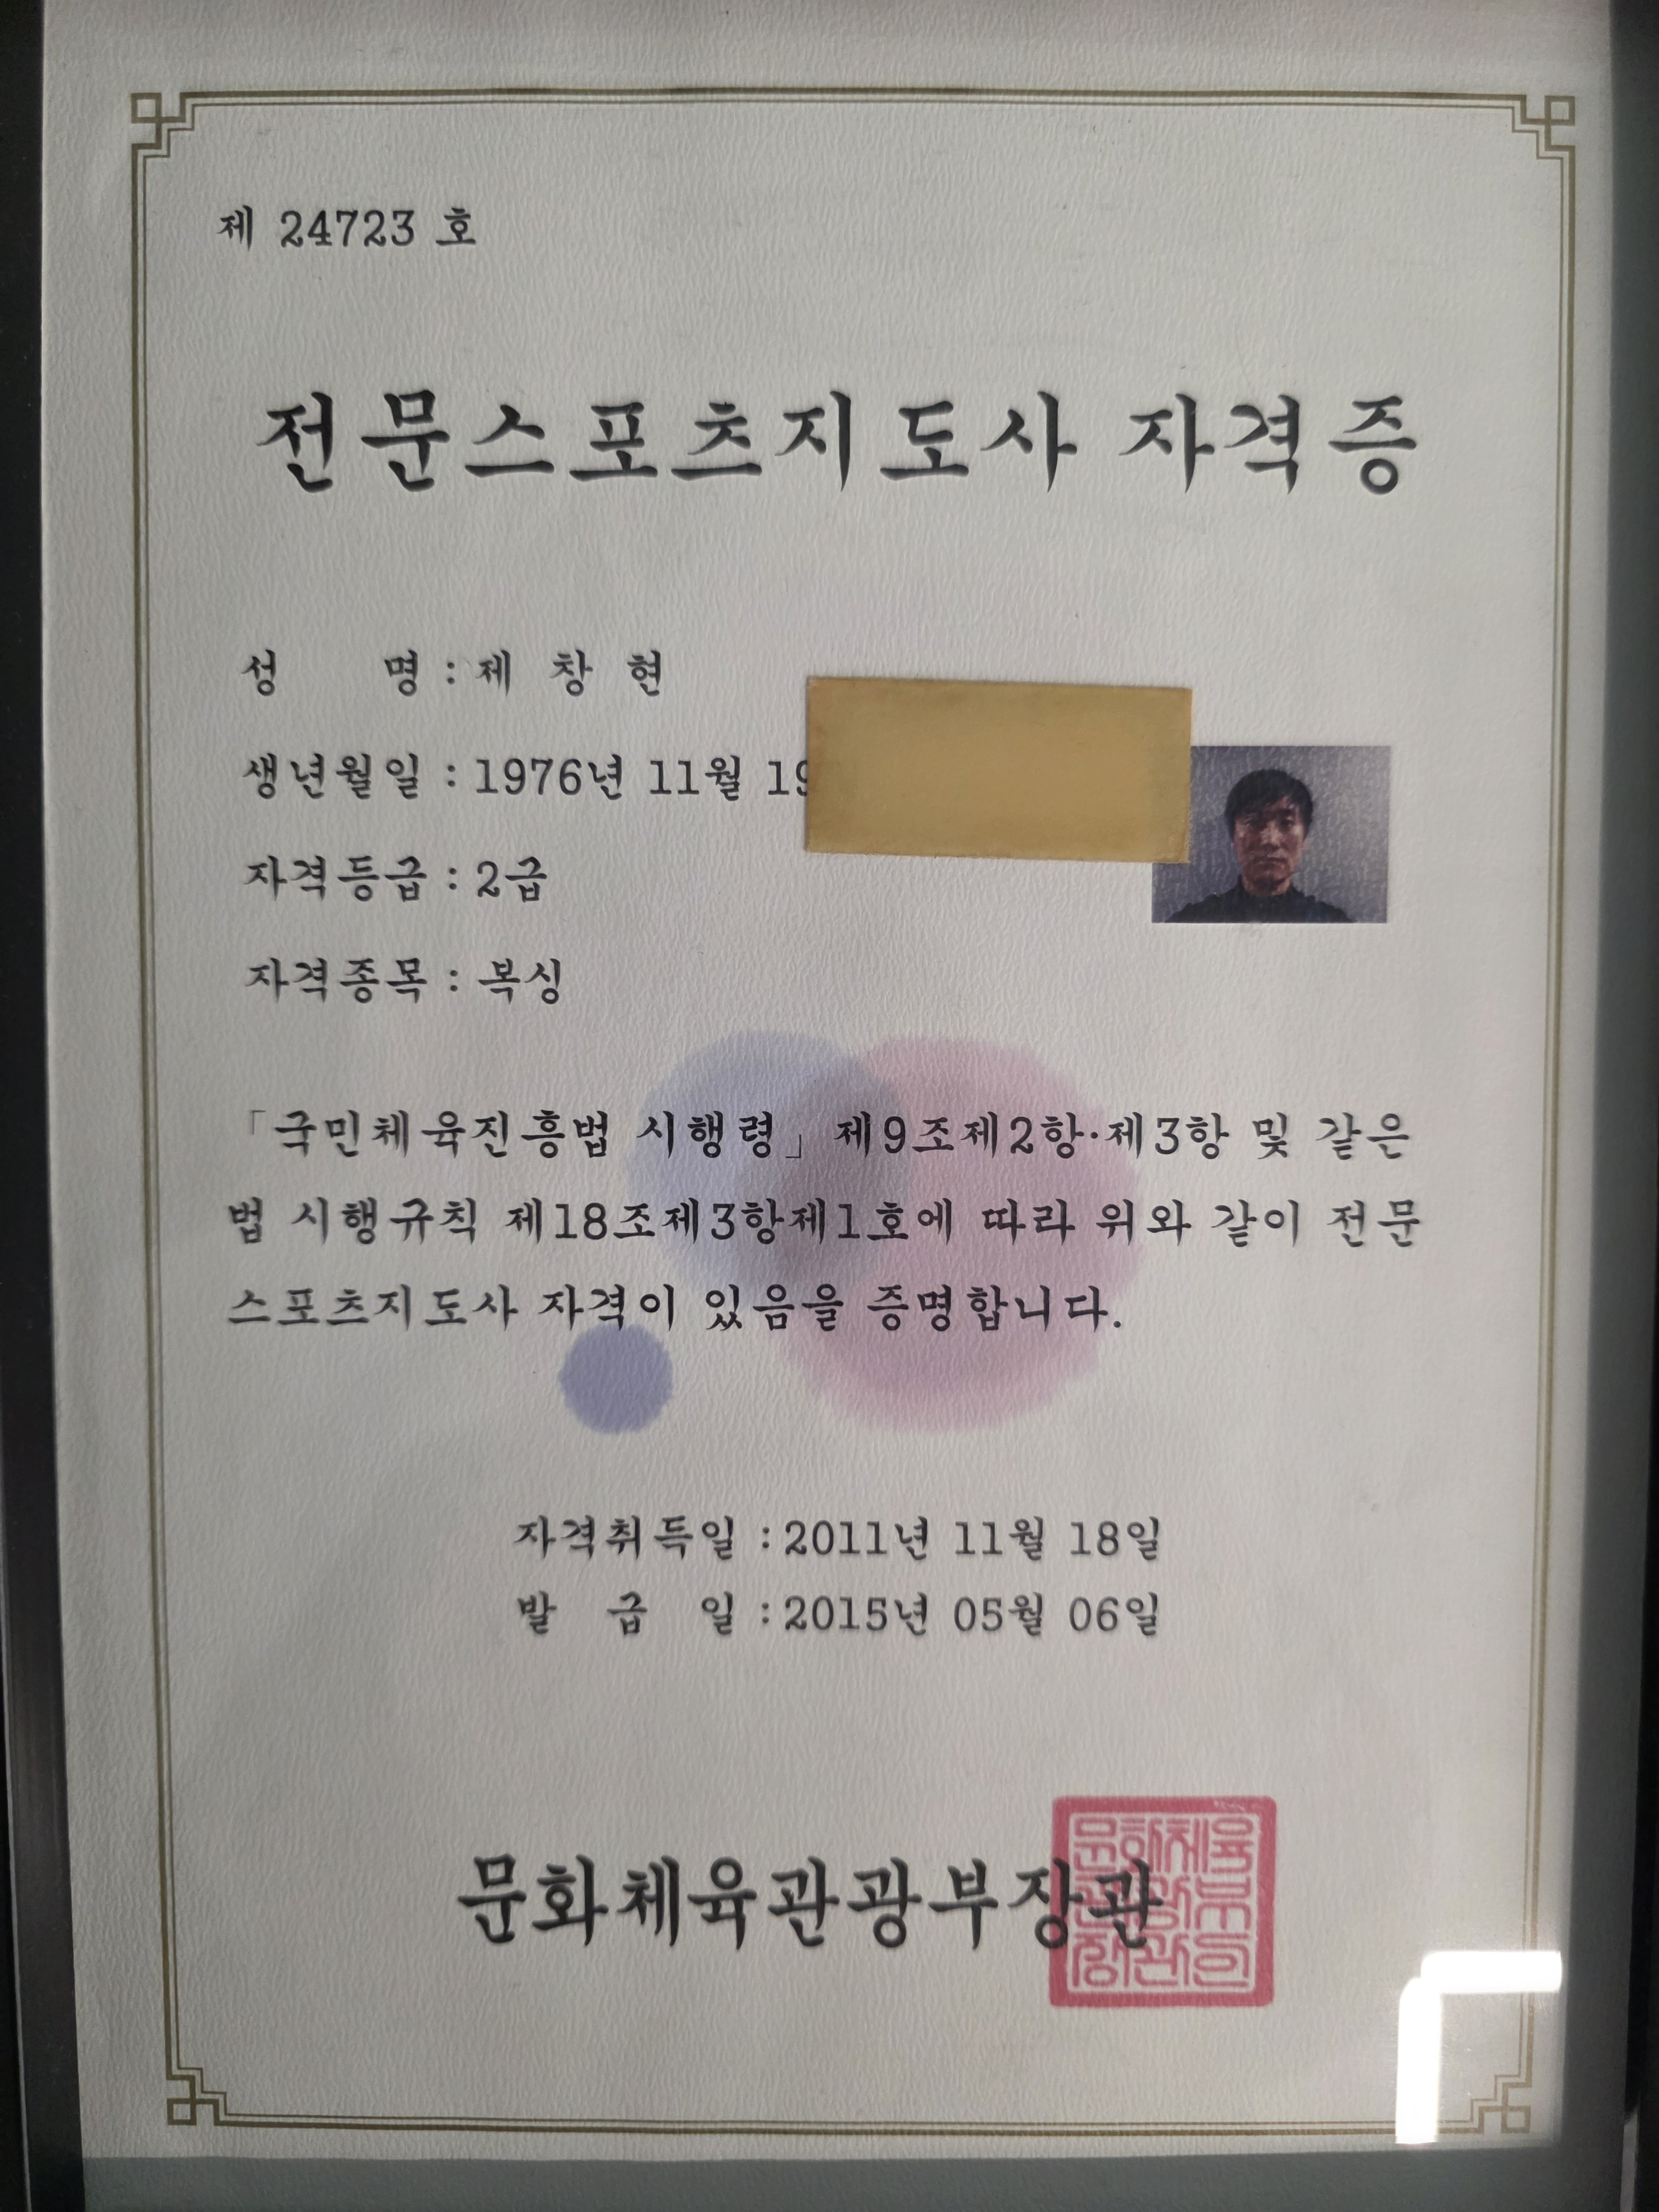 제 24723 호
전문스포츠지도사 자격증
성 명 : 제 창 현
생년월일 : 1976년 11월
자격등급 : 2급
자격종목 : 복싱
「국민체육진흥법 시행령」 제9조제2항·제3항 및 같은
법 시행규칙 제18조제3항제1호에 따라 위와 같이 전문
스포츠지도사 자격이 있음을 증명합니다.
자격취득일 : 2011년 11월 18일
발 급 일 : 2015년 05월 06일
문화체육관광부장관
문화체육
관광부
장관인